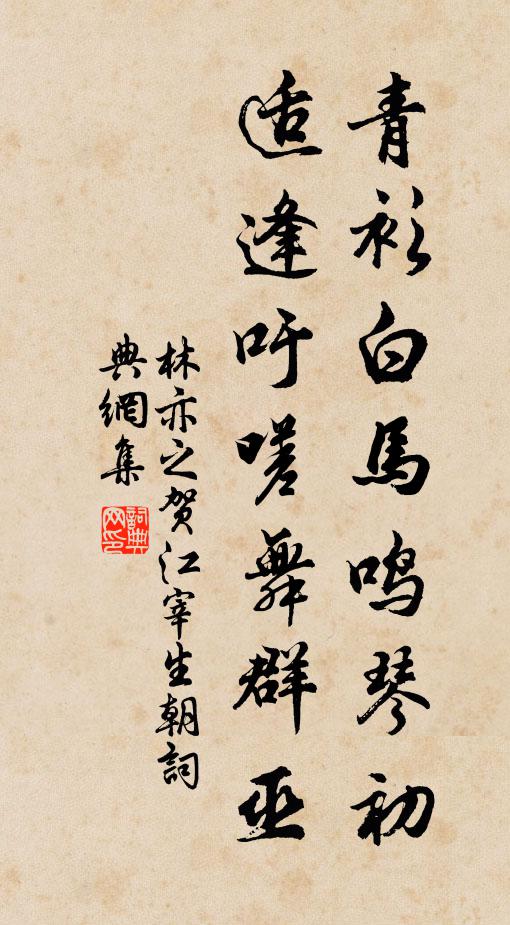 青衫白馬鳴琴初
适逢吁嗟舞群巫
林亦之贺江宰生朝詞
典網集
詞典网印